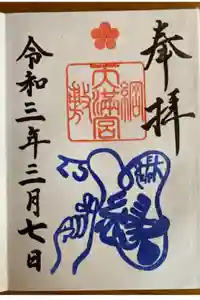 奉拝
綱敷
天満宮
令和三年三月七日